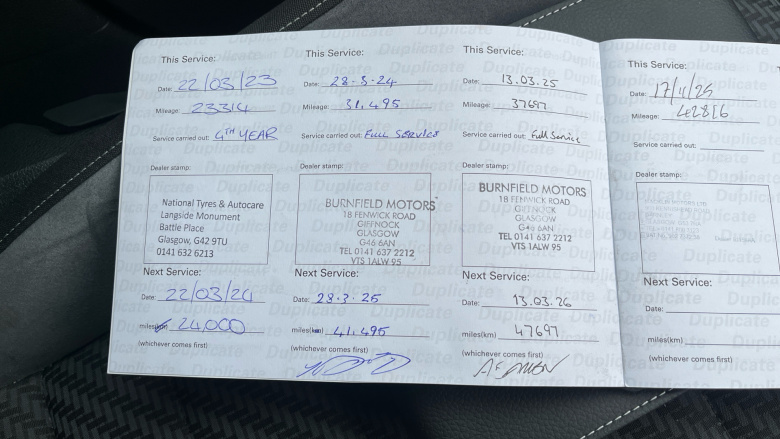 This Service:
Date: 22/03/23
Mileage: 23314
Service carried out: 4TH YEAR
Dealer stamp:
National Tyres & Autocare
Langside Monument
Battle Place
Glasgow, G42 9TU
0141 632 6213
Next Service:
Date: 22/03/24
miles(km) 24,000
(whichever comes first)
This Service:
Date: 28-3-24
Mileage: 31,495
Service carried out: FULL SERVICE
Dealer stamp:
BURNFIELD MOTORS
18 FENWICK ROAD
GIFFNOCK
GLASGOW
G46 6AN
TEL 0141 637 2212
VTS 1ALW 95
Next Service:
Date: 28-3-25
miles(km) 41,495
(whichever comes first)
This Service:
Date: 13.03.25
Mileage: 37697
Service carried out: Full Service
Dealer stamp:
BURNFIELD MOTORS
18 FENWICK ROAD
GIFFNOCK
GLASGOW
G46 6AN
TEL 0141 637 2212
VTS 1ALW 95
Next Service:
Date: 13.03.26
miles(km) 47697
(whichever comes first)
This Service:
Date: 17/11/25
Mileage: 42816
Service carried out:
Dealer stamp:
Next Service:
Date:
miles(km)
(whichever comes first)
Duplicate